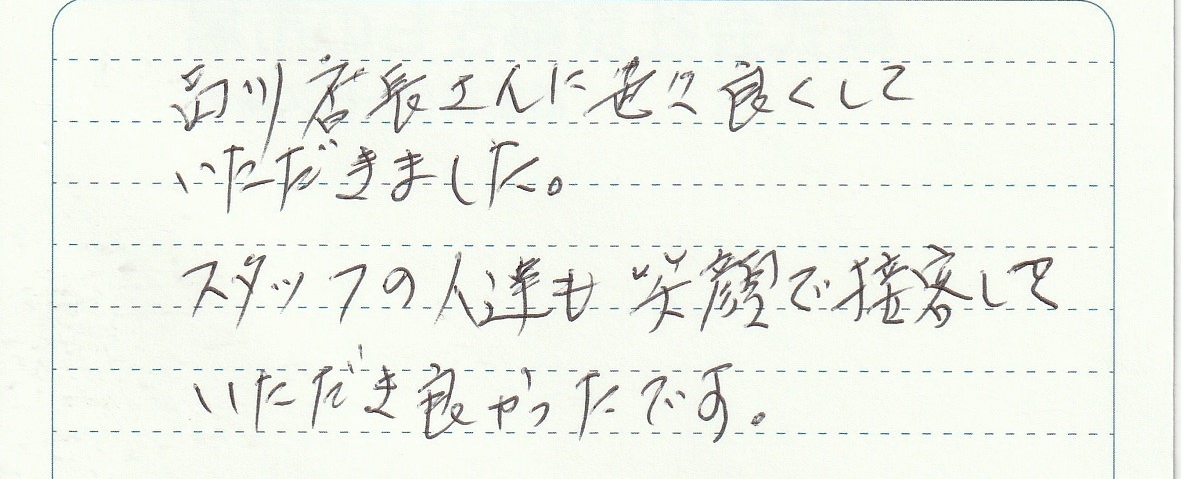 店長さんに色々良くして
いただきました。
スタッフの人達も笑顔で接客して
いただき良かったです。